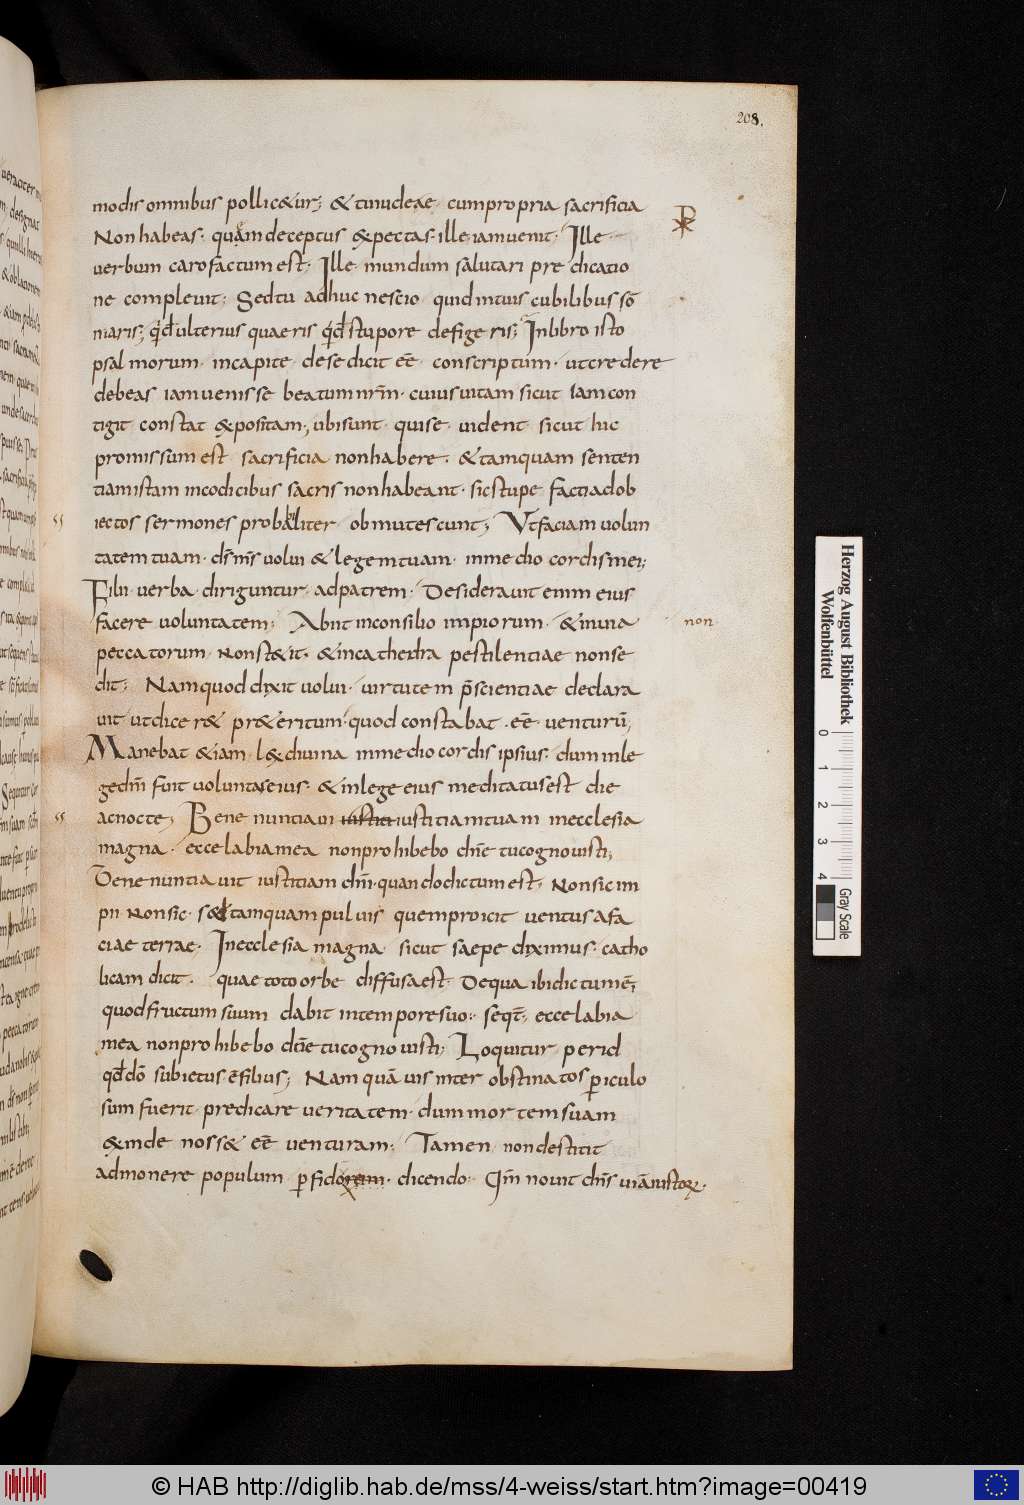 208.
modis omnibus pollic&ur; & tu iudeae cum propria sacrificia
Non habeas. quam deceptus expectas. ille iam uenit. Ille
uerbum caro factum est. Ille mundum salutari predicatio
ne compleuit; Sed tu adhuc nescio quid in tuis cubilibus sō
niaris; qđ ulterius quaeris qđ stupore defigeris; In libro isto
psalmorum in capite de se dicit eē conscriptum. ut credere
debeas iam uenisse beatum uirū. cuius uitam sicut iam con
tigit constat expositam; ubi sunt qui se uident sicut hic
promissum est sacrificia non habere. & tamquam senten
tiam istam in codicibus sacris non habeant. sic stupefacti ad ob
iectos sermones probabiliter obmutescunt; Ut faciam uolun
tatem tuam. ds ms uolui & legem tuam in medio cordis mei;
Filii uerba diriguntur ad patrem. Desiderauit enim eius
facere uoluntatem; Abiit in consilio impiorum. & in uia
non
peccatorum Non st&it. & in cathedra pestilentiae non se
dit; Nam quod dixit uolui. uirtutem p̄scientiae declara
uit ut dicer& pr&eritum. quod constabat eē uenturū;
Manebat & iam lex diuina in medio cordis ipsius. dum in le
ge dn̄i fuit uoluntas eius. & in lege eius meditatus est die
ac nocte; Bene nuntiaui iustici iustitiam tuam in ecclesia
magna. ecce labia mea non prohibebo dn̄e tu cognouisti;
Bene nuntiauit iustitiam dn̄i. quando dictum est. Non sic im
pii Non sic. sed tamquam puluis quem proicit uentus a fa
ciae terrae. In ecclesia magna sicut saepe diximus. catho
licam dicit. quae toto orbe diffusa est. De qua ibi dictum ē;
quod fructum suum dabit in tempore suo. seqt̄. ecce labia
mea non prohibebo dn̄e tu cognouisti; Loquitur per id
qđ dō subiectus ē filius; Nam quāuis inter obstinatos periculo
sum fuerit predicare ueritatem. dum mortem suam
exinde noss& eē uenturam; Tamen non destitit
admonere populum perfidorum. dicendo. Qm̄ nouit dn̄s uiā iustorū.
Herzog August Bibliothek
Wolfenbüttel
0 1 2 3 4
Gray Scale
© HAB http://diglib.hab.de/mss/4-weiss/start.htm?image=00419